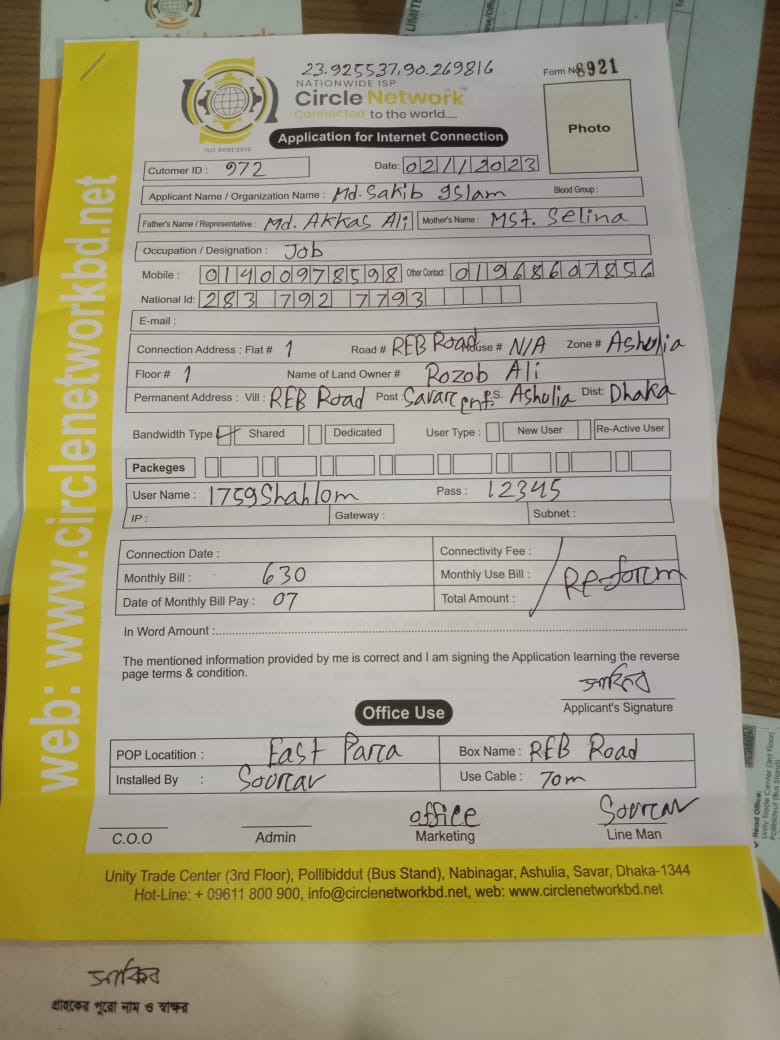 23.925537,90.269816
Form No 8921
NATIONWIDE ISP
Circle Network
Connected to the world....
ISO 9001:2015
Application for Internet Connection
Photo
Cutomer ID : 972
Date: 02/1/2023
Applicant Name / Organization Name : Md. Sakib Islam Blood Group :
Father's Name / Representative : Md. Akkas Ali Mother's Name : MST. Selina
Occupation / Designation : Job
Mobile : 01400978598 Other Contact : 01968607856
National Id: 283 792 7793
E-mail :
Connection Address : Flat # 1 Road # REB Road House # N/A Zone # Ashulia
Floor # 1 Name of Land Owner # Rozob Ali
Permanent Address : Vill : REB Road Post : Savar cnt. P.S. Ashulia Dist: Dhaka
Bandwidth Type Shared Dedicated User Type : New User Re-Active User
Packeges
User Name : 1759Shahlom Pass : 12345
IP : Gateway : Subnet :
Connection Date : Connectivity Fee :
Monthly Bill : 630 Monthly Use Bill : Re-form
Date of Monthly Bill Pay : 07 Total Amount :
In Word Amount :
The mentioned information provided by me is correct and I am signing the Application learning the reverse
page terms & condition.
সাকিব
Applicant's Signature
Office Use
POP Locatition : East Para Box Name : REB Road
Installed By : Sourav Use Cable : 70m
office Sourav
C.O.O Admin Marketing Line Man
Unity Trade Center (3rd Floor), Pollibiddut (Bus Stand), Nabinagar, Ashulia, Savar, Dhaka-1344
Hot-Line: + 09611 800 900, info@circlenetworkbd.net, web: www.circlenetworkbd.net
web: www.circlenetworkbd.net
সাকিব
গ্রাহকের পুরো নাম ও স্বাক্ষর
Head Office:
Unity Trade Center (3rd Floor)
Pollibiddut (Bus Stand)